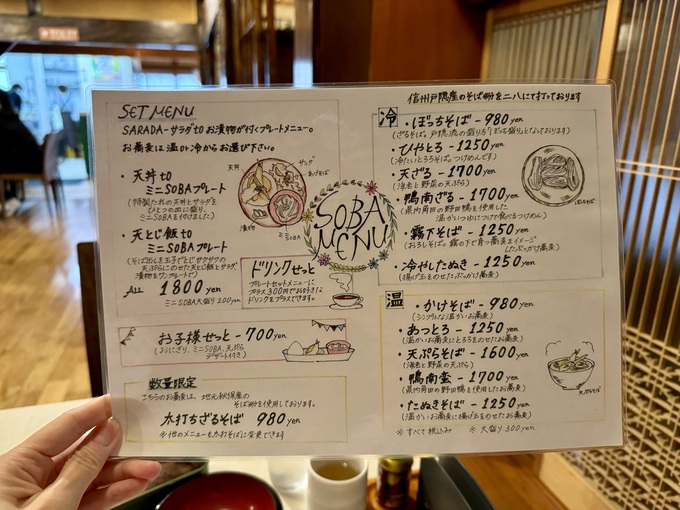 SET MENU
SARADA-サラダtoお漬物が付くプレートメニュー。
お蕎麦は温か冷からお選び下さい。
・天丼to
ミニSOBAプレート
(特製だれの天丼とサラダを
ひとつの皿に盛り、
ミニSOBAを付けました)
・天とじ飯to
ミニSOBAプレート
漬物をワンプレートで)
ALL 1800yen
ミニSOBA大盛り200yen
天丼
サラダ
あげそば
漬物
ミニSOBA
ドリンクせっと
プレートセットメニューに
プラス300円でお好きな
ドリンクをプラスできます。
お子様せっと-700yen
(おにぎり、ミニSOBA、天ぷら
デザート付き)
数量限定
こちらのお蕎麦は、地元秋保産の
そば粉を使用しております。
木打ちざるそば 980yen
※他のメニューも木打そばに変更できます
SOBA
MENU
信州戸隠産のそば粉を二八にて打っております
冷
・ぼっちそば-980yen
(ざるそば。戸隠流の盛り方「ぼっち盛り」となっております)
・ひやとろ-1250yen
(冷たいとろろそば。つけめんです)
・天ざる-1700yen
(海老と野菜の天ぷら)
・鴨南ざる-1700yen
(県内角田の野田鴨を使用した
温かいつゆにつけて食べるつけめん)
・霧下そば-1250yen
(おろしそば。霧の下で育つ蕎麦をイメージ
したぶっかけ蕎麦)
・冷やしたぬき-1250yen
(揚げ玉をのせたぶっかけ蕎麦)
ぼっちそば
温
・かけそば-980yen
(シンプルな温かいお蕎麦)
・あつとろ-1250yen
(温かいお蕎麦にとろろをのせたお蕎麦)
・天ぷらそば-1600yen
(海老と野菜の天ぷら)
・鴨南蛮-1700yen
(県内角田の野田鴨を使用したお蕎麦)
・たぬきそば-1250yen
(温かいお蕎麦に揚げ玉をのせたお蕎麦)
天ぷらそば
※すべて税込み ※大盛り300yen